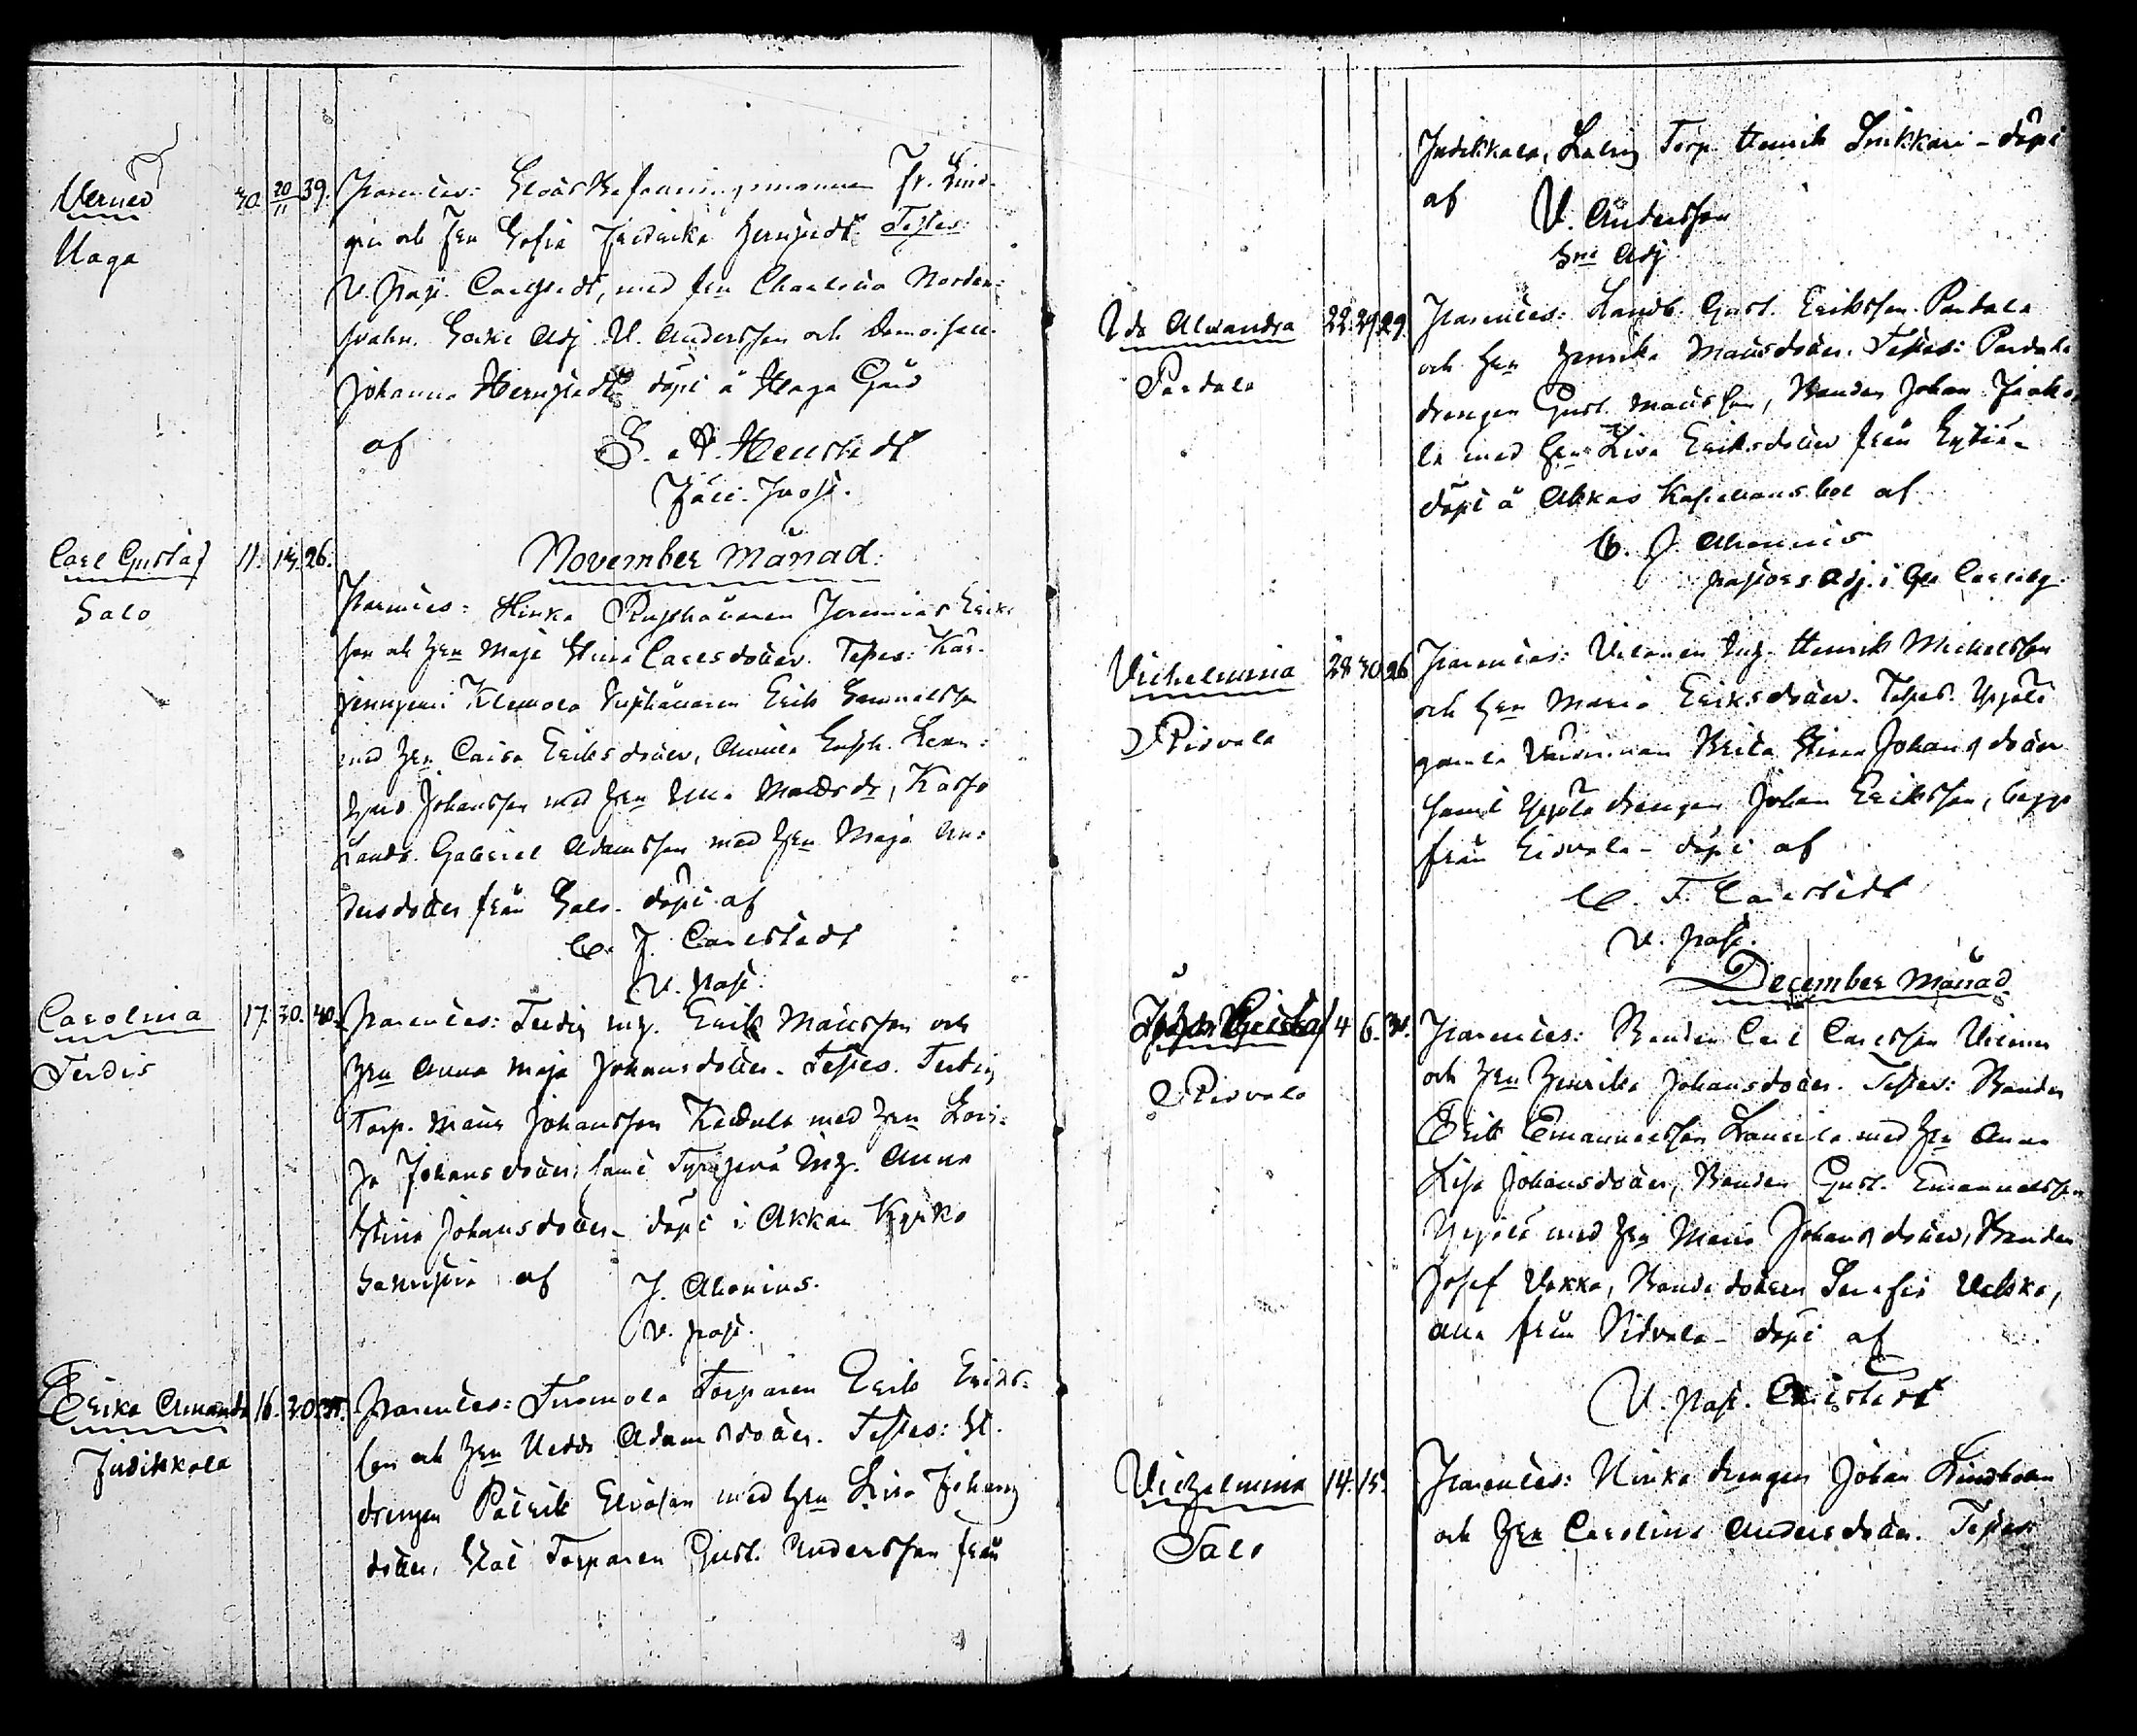 Verner 30. 20/11 39. Parentes: Fr. Lind-
Haga
gren och Hru Sofia Fredrika Hernstedt. Testes:
V. past. Carlstedt, med fru Charlotta Norden-
svahn. Sockne Adj V. Andersson och Demoiselle
Johanna Hernstedt döpt å Haga Gård
af S. A. Hernstedt
Häll. Prost.
November Månad.
Carl Gustaf 11. 14. 26.
Salo
Parentes: Hinka Rusthållaren Jeremias Eriks-
son och Hru Maja Stina Carlsdotter. Testes: Kär-
Klemola Rusthållaren Erik Samuelsson
med Hru Caisa Eriksdotter, Annula Rusth. Lenn-
Johansson med Hru Ulla Mattsdr, Karso
Landb. Gabriel Adamsson med Hru Maja An-
dersdotter från Salo. döpt af
C. F. Carlstedt
V. past.
Carolina 17. 30. 40.
Terdis
Parentes: Terdis Erik Mattsson och
Hru Anna Maja Johansdotter. Testes. Terdis
Torp. Matts Johansson med Hru Lovi-
sa Johansdotter, samt Anna
Stina Johansdotter - döpt i Akkas Kyrko
Sakristia af J. Ahonius.
V. past.
Erika Amanda 16. 30. 35.
Judikkala
Parentes: Tuomola Torparen Erik Eriks-
son och Hru Hedda Adamsdotter. Testes: St.
drengen Patrik Elväsen med Hru Lisa Johans
dotter, Torparen Gust. Andersson från
Judikkala, Torp. Henrik Snikkari - döpt
af V. Andersson
Sne Adj
Ida Alexandra 22. 29. 29.
Pardala
Parentes: Landb. Gust. Eriksson Pardala
och Hru Henrika Mattsdotter. Testes: Pardala
drengen Gust. Mattsson, Bonden Johan Jaako-
la med Hru Lisa Eriksdotter från
döpt å Akkas Kapellansbol af
C. J. Ahonius
pastors Adj. i
Vilhelmina 28 30 26
Ridvala
Parentes: Uilonen Inh. Henrik Michelsson
och Hru Maria Eriksdotter. Testes. Yrjölä
gamla Värdinnan Brita Stina Johansdotter
samt Yrjölä drengen Johan Eriksson, begge
från Ridvala - döpt af
C. F. Carlstedt
V. past.
December Månad
Gustaf 4 6.
Ridvala
Parentes: Bonden Carl Carlsson Uilonen
och Hru Henrika Johansdotter. Testes: Bonden
Erik Emanuelsson Laurila med Hru Anna
Lisa Johansdotter, Bonden Gust. Emanuelsson
Yrjölä med Hru Maria Johansdotter, Bonden
Josef Uskka, Bonde dottern Serafia Uskka,
alla från Ridvala - döpt af
V. past. Carlstedt
Vilhelmina 14. 15.
Salo
Parentes: Hinka drengen Johan Lindholm
och Hru Carolina Andersdotter. Testes